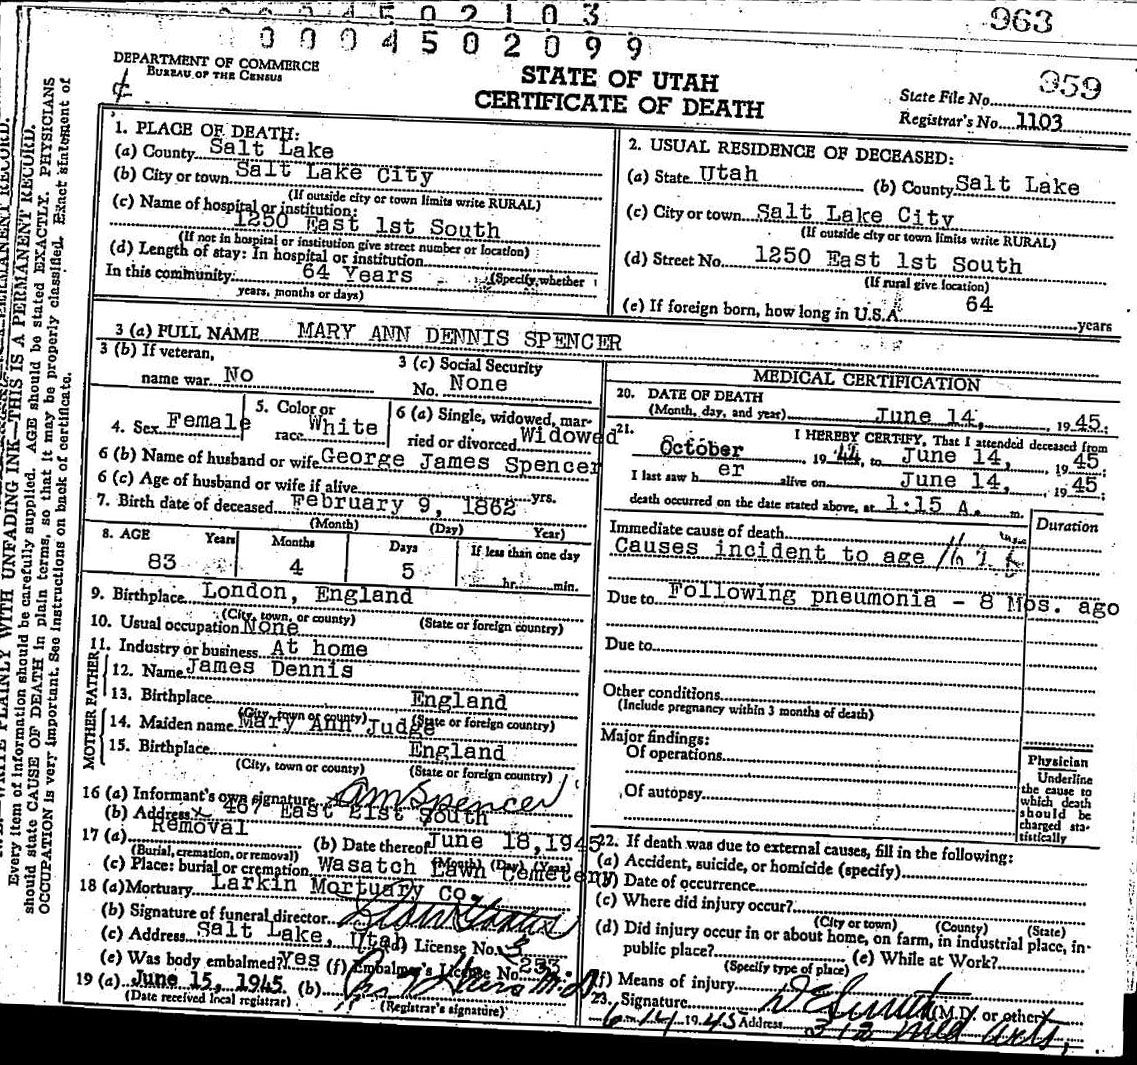 0 0 0 4 5 0 2 1 0 3
963
0 0 0 4 5 0 2 0 9 9
DEPARTMENT OF COMMERCE
BUREAU OF THE CENSUS
STATE OF UTAH
CERTIFICATE OF DEATH
959
State File No.
Registrar's No. 1103
WRITE PLAINLY WITH UNFADING INK—THIS IS A PERMANENT RECORD.
Every item of information should be carefully supplied. AGE should be stated EXACTLY. PHYSICIANS
should state CAUSE OF DEATH in plain terms, so that it may be properly classified. Exact statement of
OCCUPATION is very important. See instructions on back of certificate.
1. PLACE OF DEATH:
(a) County Salt Lake
(b) City or town Salt Lake City
(If outside city or town limits write RURAL)
(c) Name of hospital or institution:
1250 East 1st South
(If not in hospital or institution give street number or location)
(d) Length of stay: In hospital or institution
(Specify whether
In this community 64 Years
years, months or days)
2. USUAL RESIDENCE OF DECEASED:
(a) State Utah (b) County Salt Lake
(c) City or town Salt Lake City
(If outside city or town limits write RURAL)
(d) Street No. 1250 East 1st South
(If rural give location)
(e) If foreign born, how long in U.S.A. 64 years
3 (a) FULL NAME MARY ANN DENNIS SPENCER
3 (b) If veteran,
name war No
3 (c) Social Security
No. None
4. Sex Female
5. Color or
race White
6 (a) Single, widowed, mar-
ried or divorced Widowed
6 (b) Name of husband or wife George James Spencer
6 (c) Age of husband or wife if alive yrs.
7. Birth date of deceased February 9, 1862
(Month) (Day) Year)
8. AGE Years Months Days If less than one day
83 4 5 hr. min.
9. Birthplace London, England
(City, town, or county) (State or foreign country)
10. Usual occupation None
11. Industry or business At home
FATHER
12. Name James Dennis
13. Birthplace England
(City, town or county) (State or foreign country)
MOTHER
14. Maiden name Mary Ann Judge
15. Birthplace England
(City, town or county) (State or foreign country)
16 (a) Informant's own signature AM Spencer
(b) Address 467 East 21st South
17 (a) Removal (b) Date thereof June 18, 1945
(Burial, cremation, or removal) (Month) (Day) (Year)
(c) Place: burial or cremation Wasatch Lawn Cemetery
18 (a) Mortuary Larkin Mortuary Co.
(b) Signature of funeral director
(c) Address Salt Lake, Utah (d) License No. 3
(e) Was body embalmed? Yes (f) Embalmer's License No. 253
19 (a) June 15, 1945 (b) M.D.
(Date received local registrar) (Registrar's signature)
MEDICAL CERTIFICATION
20. DATE OF DEATH
(Month, day, and year) June 14, 1945.
21. I HEREBY CERTIFY, That I attended deceased from
October 1944, to June 14, 1945.
I last saw her alive on June 14, 1945;
death occurred on the date stated above, at 1:15 A. m.
Duration
Immediate cause of death
Causes incident to age
Due to Following pneumonia - 8 Mos. ago
Due to
Other conditions
(Include pregnancy within 3 months of death)
Major findings:
Of operations
Of autopsy
Physician
Underline
the cause to
which death
should be
charged sta-
tistically
22. If death was due to external causes, fill in the following:
(a) Accident, suicide, or homicide (specify)
(b) Date of occurrence
(c) Where did injury occur?
(City or town) (County) (State)
(d) Did injury occur in or about home, on farm, in industrial place, in-
public place? (e) While at Work?
(Specify type of place)
(f) Means of injury
23. Signature (M.D. or other)
6-14-1945 Address 312 Med Arts,